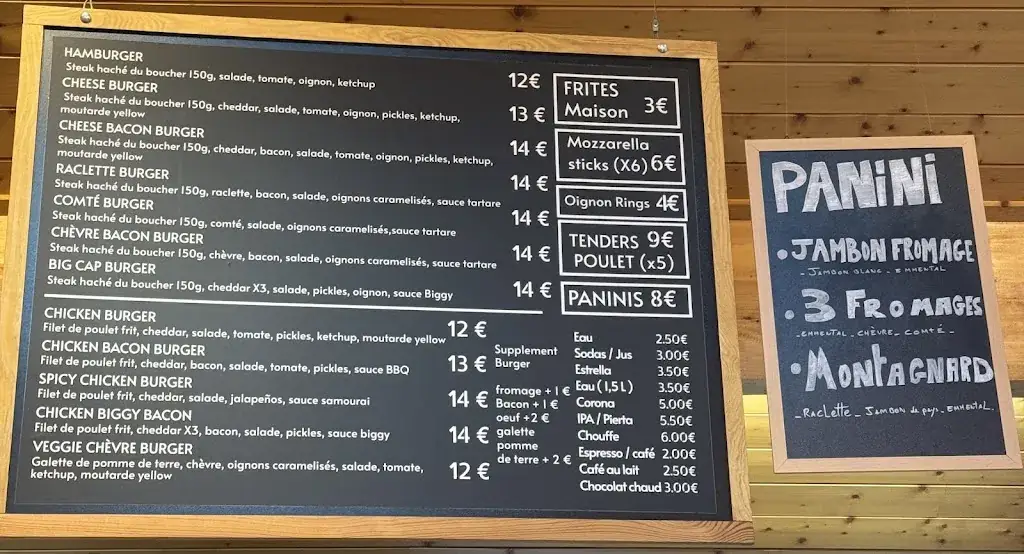 HAMBURGER
Steak haché du boucher 150g, salade, tomate, oignon, ketchup
12€
CHEESE BURGER
Steak haché du boucher 150g, cheddar, salade, tomate, oignon, pickles, ketchup,
moutarde yellow
13 €
CHEESE BACON BURGER
Steak haché du boucher 150g, cheddar, bacon, salade, tomate, oignon, pickles, ketchup,
moutarde yellow
14 €
RACLETTE BURGER
Steak haché du boucher 150g, raclette, bacon, salade, oignons caramelisés, sauce tartare
14 €
COMTÉ BURGER
Steak haché du boucher 150g, comté, salade, oignons caramelisés,sauce tartare
14 €
CHÈVRE BACON BURGER
Steak haché du boucher 150g, chèvre, bacon, salade, oignons caramelisés, sauce tartare
14 €
BIG CAP BURGER
Steak haché du boucher 150g, cheddar X3, salade, pickles, oignon, sauce Biggy
14 €
CHICKEN BURGER
Filet de poulet frit, cheddar, salade, tomate, pickles, ketchup, moutarde yellow
12 €
CHICKEN BACON BURGER
Filet de poulet frit, cheddar, bacon, salade, tomate, pickles, sauce BBQ
13 €
SPICY CHICKEN BURGER
Filet de poulet frit, cheddar, salade, jalapeños, sauce samourai
14 €
CHICKEN BIGGY BACON
Filet de poulet frit, cheddar X3, bacon, salade, pickles, sauce biggy
14 €
VEGGIE CHÈVRE BURGER
Galette de pomme de terre, chèvre, oignons caramelisés, salade, tomate,
ketchup, moutarde yellow
12 €
Supplement
Burger
fromage + 1 €
Bacon + 1 €
oeuf +2 €
galette
pomme
de terre + 2 €
FRITES
Maison 3€
Mozzarella
sticks (X6) 6€
Oignon Rings 4€
TENDERS 9€
POULET (x5)
PANINIS 8€
Eau 2.50€
Sodas / Jus 3.00€
Estrella 3.50€
Eau (1,5 L) 3.50€
Corona 5.00€
IPA / Pierta 5.50€
Chouffe 6.00€
Espresso / café 2.00€
Café au lait 2.50€
Chocolat chaud 3.00€
PANiNi
• JAMBON FROMAGE
- JAMBON BLANC - EMMENTAL
• 3 FROMAGES
- EMMENTAL - CHÈVRE - COMTÉ -
• MONTAGNARD
- RACLETTE - JAMBON de pays - EMMENTAL.